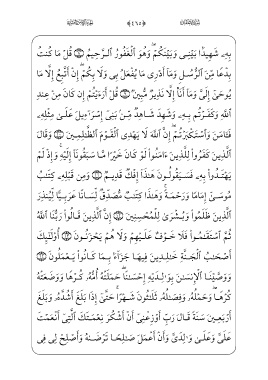 ﴿٤٦٥﴾
بِهِۦ شَهِيدًۢا بَيۡنِي وَبَيۡنَكُمۡۖ وَهُوَ ٱلۡغَفُورُ ٱلرَّحِيمُ ۝ قُلۡ مَا كُنتُ
بِدۡعٗا مِّنَ ٱلرُّسُلِ وَمَآ أَدۡرِي مَا يُفۡعَلُ بِي وَلَا بِكُمۡۖ إِنۡ أَتَّبِعُ إِلَّا مَا
يُوحَىٰٓ إِلَيَّ وَمَآ أَنَا۠ إِلَّا نَذِيرٞ مُّبِينٞ ۝ قُلۡ أَرَءَيۡتُمۡ إِن كَانَ مِنۡ عِندِ
ٱللَّهِ وَكَفَرۡتُم بِهِۦ وَشَهِدَ شَاهِدٞ مِّنۢ بَنِيٓ إِسۡرَٰٓءِيلَ عَلَىٰ مِثۡلِهِۦ
فَـَٔامَنَ وَٱسۡتَكۡبَرۡتُمۡۚ إِنَّ ٱللَّهَ لَا يَهۡدِي ٱلۡقَوۡمَ ٱلظَّٰلِمِينَ ۝ وَقَالَ
ٱلَّذِينَ كَفَرُواْ لِلَّذِينَ ءَامَنُواْ لَوۡ كَانَ خَيۡرٗا مَّا سَبَقُونَآ إِلَيۡهِۚ وَإِذۡ لَمۡ
يَهۡتَدُواْ بِهِۦ فَسَيَقُولُونَ هَٰذَآ إِفۡكٞ قَدِيمٞ ۝ وَمِن قَبۡلِهِۦ كِتَٰبُ
مُوسَىٰٓ إِمَامٗا وَرَحۡمَةٗۚ وَهَٰذَا كِتَٰبٞ مُّصَدِّقٞ لِّسَانًا عَرَبِيّٗا لِّيُنذِرَ
ٱلَّذِينَ ظَلَمُواْ وَبُشۡرَىٰ لِلۡمُحۡسِنِينَ ۝ إِنَّ ٱلَّذِينَ قَالُواْ رَبُّنَا ٱللَّهُ
ثُمَّ ٱسۡتَقَٰمُواْ فَلَا خَوۡفٌ عَلَيۡهِمۡ وَلَا هُمۡ يَحۡزَنُونَ ۝ أُوْلَٰٓئِكَ
أَصۡحَٰبُ ٱلۡجَنَّةِ خَٰلِدِينَ فِيهَا جَزَآءَۢ بِمَا كَانُواْ يَعۡمَلُونَ ۝
وَوَصَّيۡنَا ٱلۡإِنسَٰنَ بِوَٰلِدَيۡهِ إِحۡسَٰنًاۖ حَمَلَتۡهُ أُمُّهُۥ كُرۡهٗا وَوَضَعَتۡهُ
كُرۡهٗاۖ وَحَمۡلُهُۥ وَفِصَٰلُهُۥ ثَلَٰثُونَ شَهۡرًاۚ حَتَّىٰٓ إِذَا بَلَغَ أَشُدَّهُۥ وَبَلَغَ
أَرۡبَعِينَ سَنَةٗ قَالَ رَبِّ أَوۡزِعۡنِيٓ أَنۡ أَشۡكُرَ نِعۡمَتَكَ ٱلَّتِيٓ أَنۡعَمۡتَ
عَلَيَّ وَعَلَىٰ وَٰلِدَيَّ وَأَنۡ أَعۡمَلَ صَٰلِحٗا تَرۡضَىٰهُ وَأَصۡلِحۡ لِي فِي